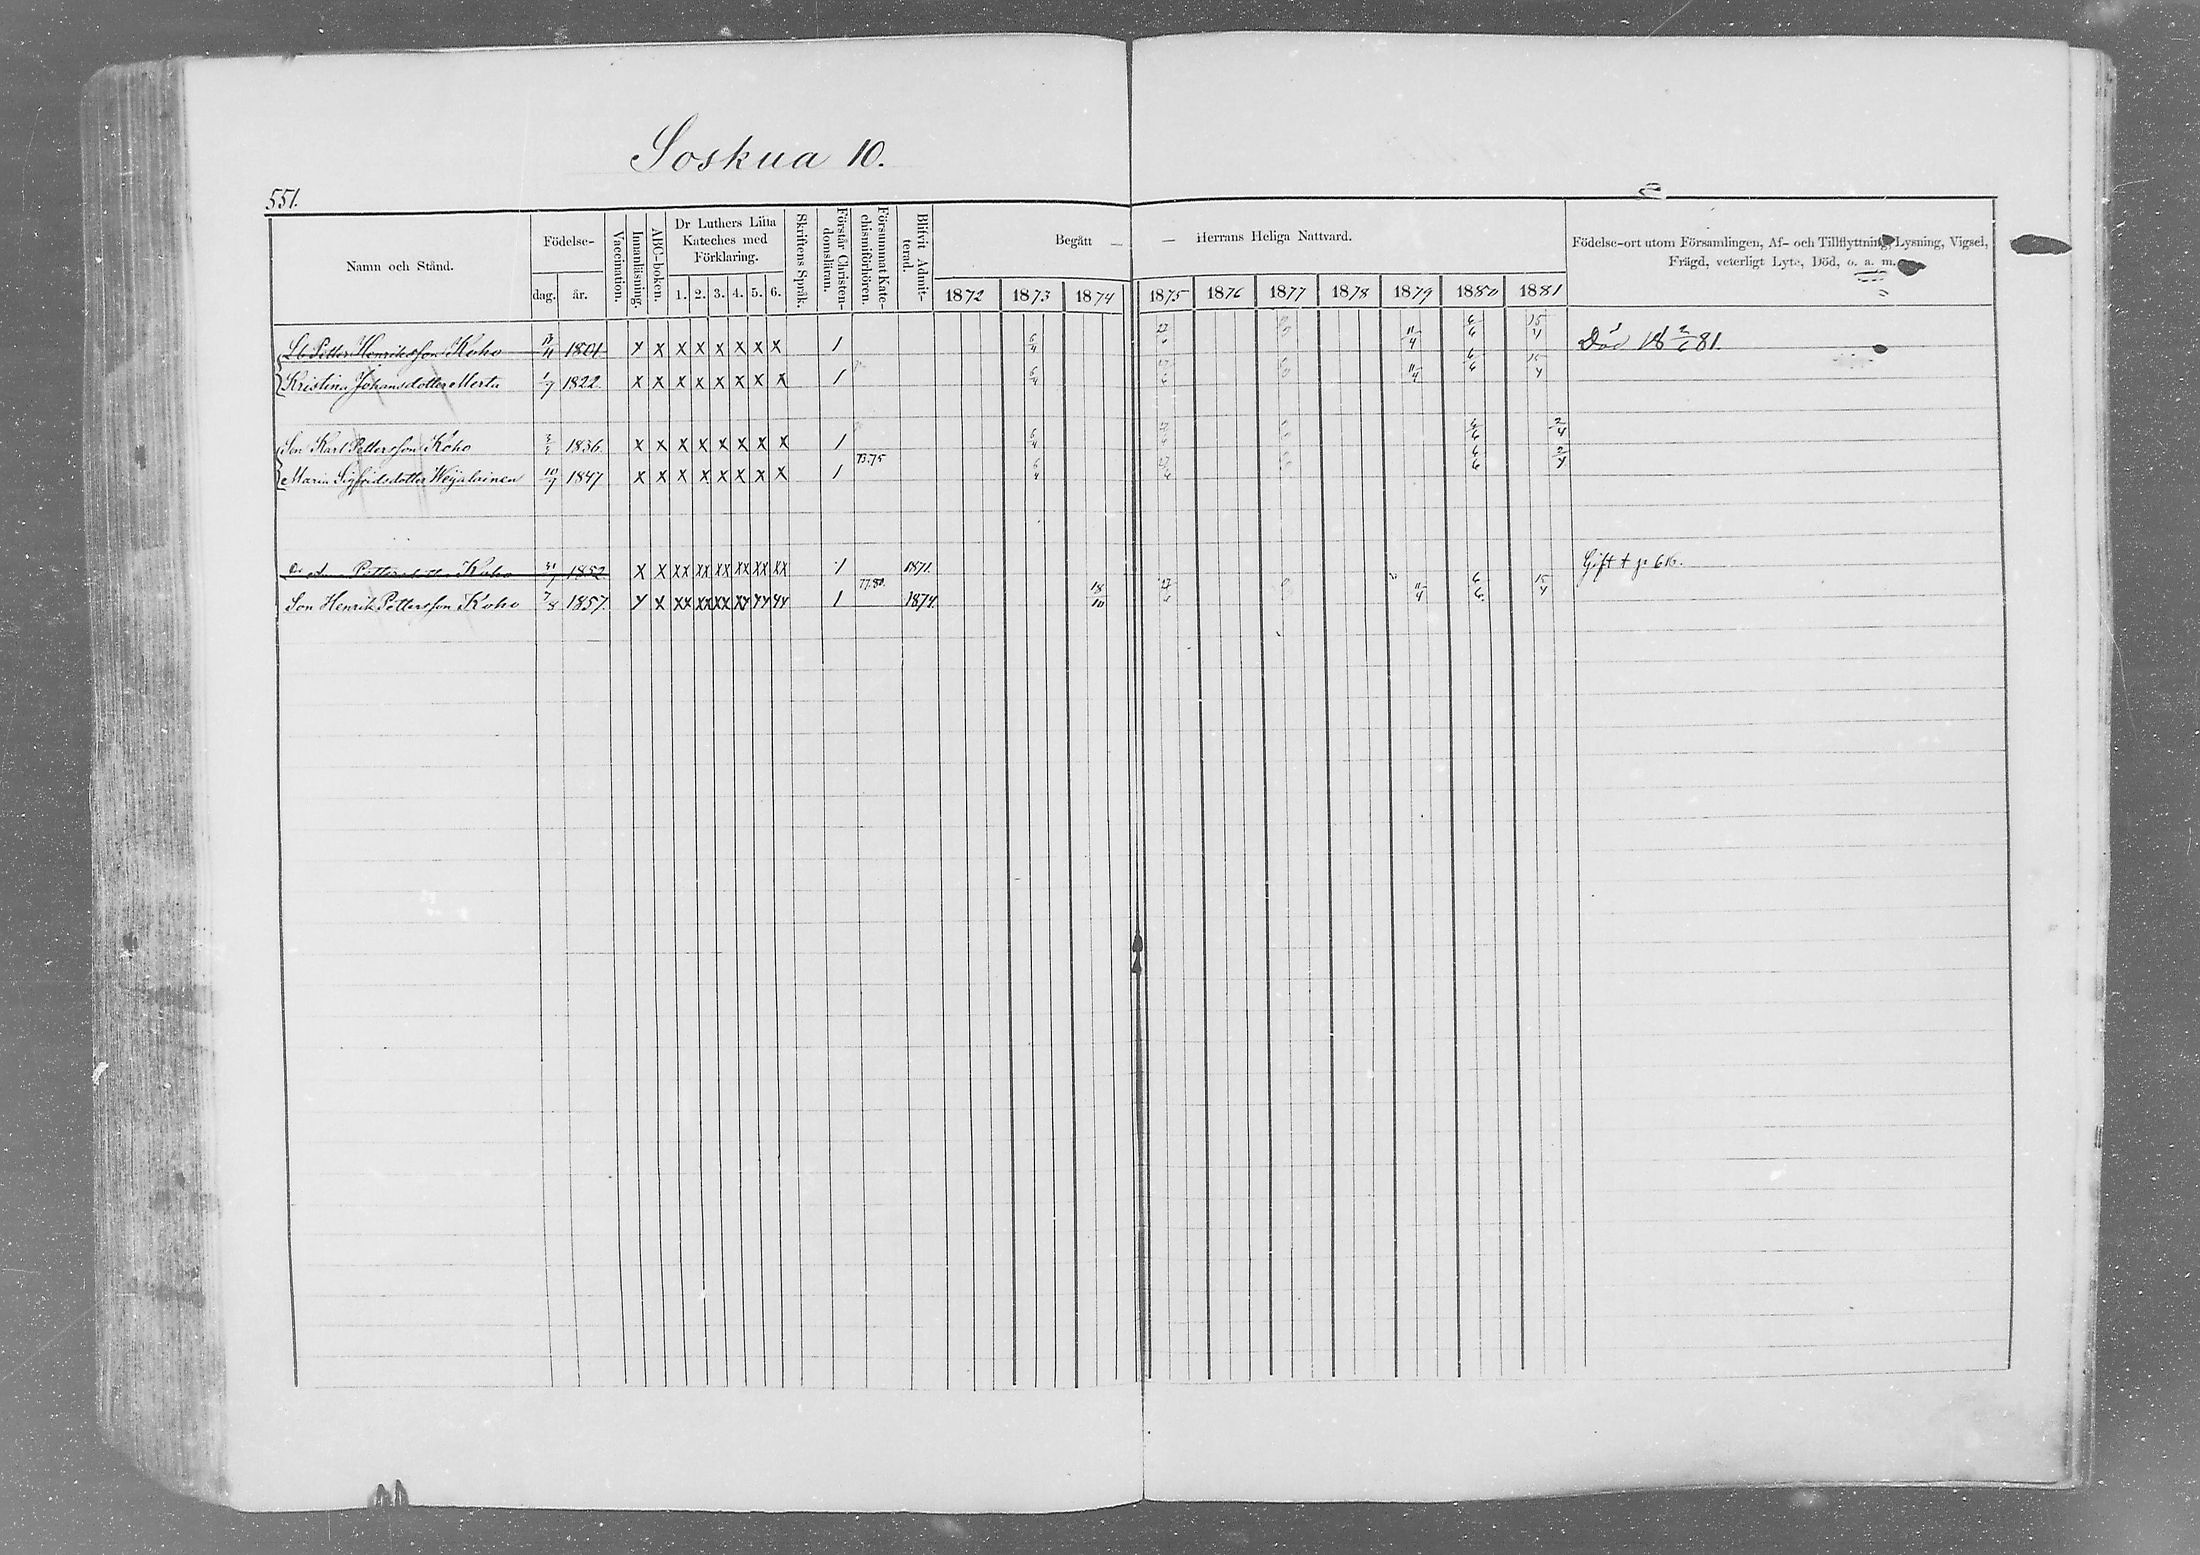 Soskua 10.
551.
Namn och Stånd.
Födelse-
dag. år.
Vaccination.
Innanläsning.
ABC-boken.
Dr Luthers Lilla Kateches med Förklaring.
1. 2. 3. 4. 5. 6.
Skriftens Språk.
Förstår Christen-domsläran.
Försummat Kate-chismiförhören.
Blifvit Admit-terad.
Begått — — Herrans Heliga Nattvard.
1872 1873 1874 1875 1876 1877 1878 1879 1880 1881
Födelse-ort utom Församlingen, Af- och Tillflyttning, Lysning, Vigsel,
Frägd, veterligt Lyte, Död, o. a. m.
Petter Henriksson Koho 1801 x x x x x x x x 1 6/4 11/4 6/6 15/4 Död 18 81.
Kristina Johansdotter Merta 1/7 1822. x x x x x x x x 1 6/4 11/4 6/6 15/4
Son Karl Pettersson Koho 1836. x x x x x x x x 1 6/4 6/6 2/4
Maria Sigfridsdotter Weijalainen 10/7 1847 x x x x x x x x 1 73.75 6/4 27/6 6/6 2/4
Pettersdotter Koho 1852 x x xx xx xx xx xx xx 1 1871. Gift
Son Henrik Pettersson Koho 7/8 1857. x x xx xx xx xx xx xx 1 77.80. 1874. 18/10 11/4 6/6 15/4